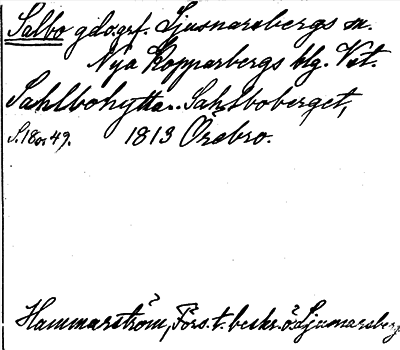 Salbo gdo.grf. Ljusnarsbergs sn.
Nya Kopparbergs blg. Vst.
Sahlbohyttan. Sahlboberget,
S. 18 o. 49. 1813 Örebro.
Hammarström, Förs. t. beskr. ö. Ljusnarsberg